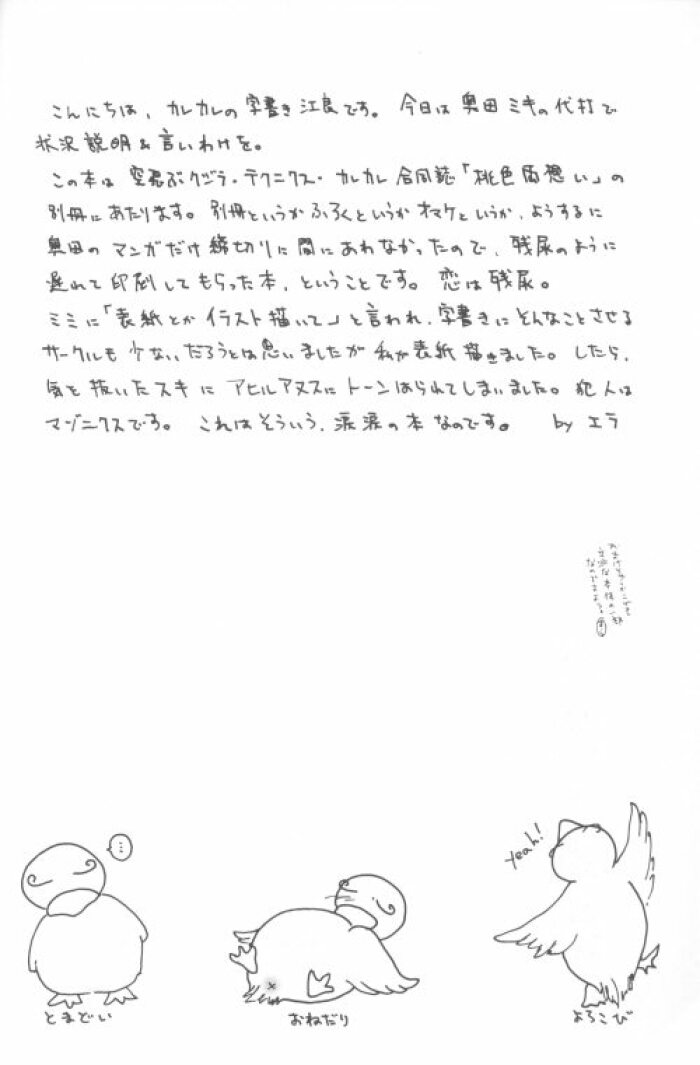 こんにちは、カレカレの字書き江良です。 今日は奥田ミキの代打で
状況説明&言いわけを。
この本は空飛ぶクジラ・テクニクス・カレカレ合同誌「桃色片想い」の
別冊にあたります。別冊というかふろくというかオマケというか、ようするに
奥田のマンガだけ締切りに間にあわなかったので、残尿のように
遅れて印刷してもらった本、ということです。恋は残尿。
ミミに「表紙とかイラスト描いて」と言われ、字書きにそんなことさせる
サークルも少ないだろうとは思いましたが私が表紙描きました。したら、
気を抜いたスキにアヒルアヌスにトーンはられてしまいました。犯人は
マゾニクスです。 これはそういう、涙涙の本なのです。 by エラ
なのですよう。
…
Yeah!
とまどい
おねだり
よろこび